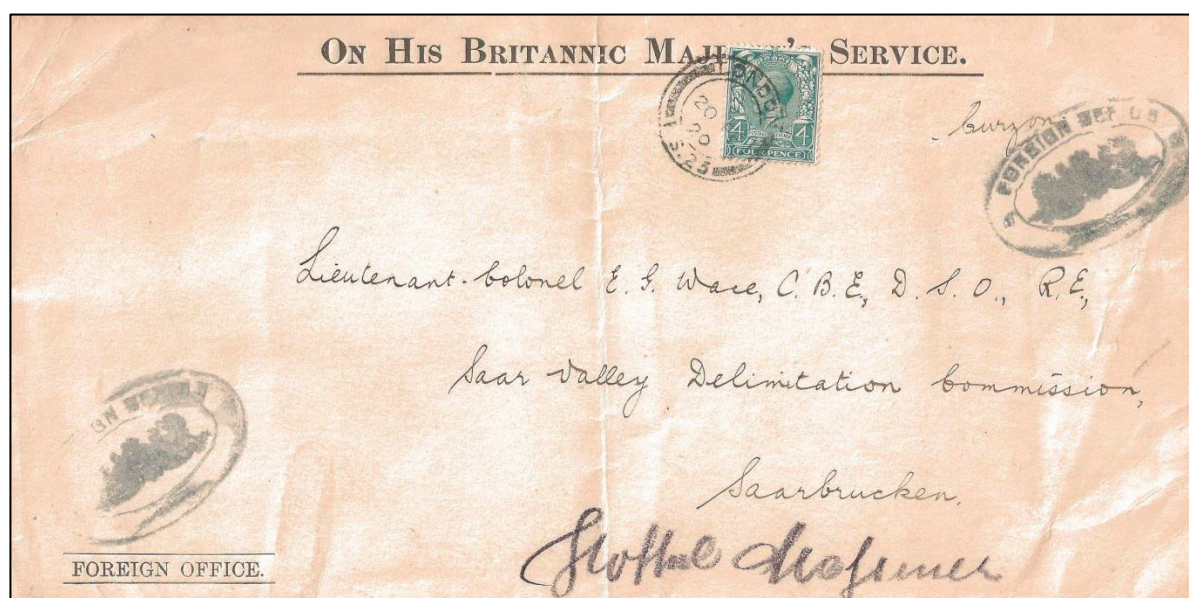 ON HIS BRITANNIC MAJE 'S SERVICE.
LONDON
20
20
S.23
4 4
FOURPENCE
Curzon
FOREIGN
Lieutenant-Colonel E. G. Wace, C.B.E., D.S.O., R.E.,
Saar Valley Delimitation Commission,
Saarbrucken.
FOREIGN OFFICE.